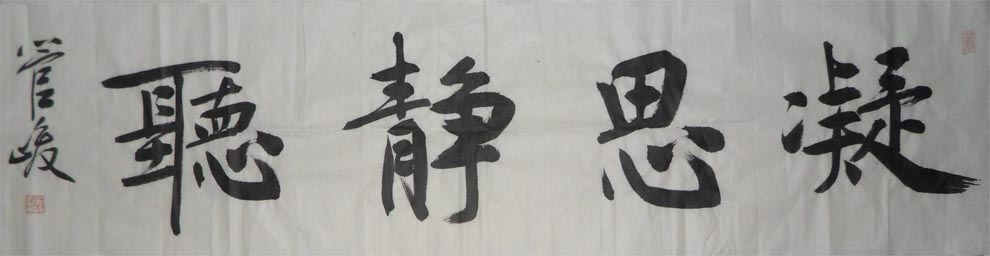 凝思静聽
管峻